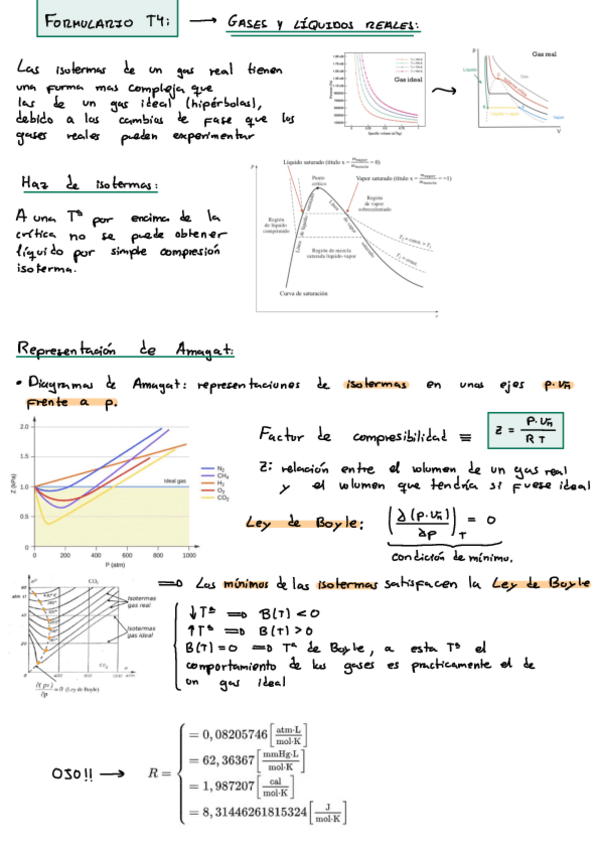 FORMULARIO T4: → GASES Y LÍQUIDOS REALES:
Las isotermas de un gas real tienen
una forma mas compleja que
las de un gas ideal (hipérbolas),
debido a los cambios de fase que los
gases reales pueden experimentar
Gas ideal
Specific volume (m³/kg)
Gas real
P
Líquido
Gas
Líquido + vapor
Vapor
V
Haz de isotermas:
A una Tª por encima de la
crítica no se puede obtener
líquido por simple compresión
isoterma.
Líquido saturado (título x = m_vapor/m_mezcla = 0)
Vapor saturado (título x = m_vapor/m_mezcla = −1)
P
Punto
crítico
Región
de vapor
sobrecalentado
Región
de líquido
comprimido
Línea de líquido saturado
Línea de vapor saturado
T₂ = const. > T₁
T₁ = const.
Región de mezcla
saturada líquido-vapor
Curva de saturación
v
Representación de Amagat:
• Diagramas de Amagat: representaciones de isotermas en unos ejes p·v_m
frente a p.
2.0
1.5
1.0
0.5
0
Z (kPa)
Ideal gas
0 200 400 600 800 1000
P (atm)
N₂
CH₄
H₂
O₂
CO₂
Factor de compresibilidad ≡ z = P·v_m / R T
Z: relación entre el volumen de un gas real
y el volumen que tendría si fuese ideal
Ley de Boyle: (∂(p·v_m)/∂p)_T = 0
condición de mínimo.
CO₂
Isotermas
gas real
Isotermas
gas ideal
∂(pv)/∂p = 0 (Ley de Boyle)
⇒ Los mínimos de las isotermas satisfacen la Ley de Boyle
↓Tª ⇒ B(T) < 0
↑Tª ⇒ B(T) > 0
B(T) = 0 ⇒ Tª de Boyle, a esta Tª el
comportamiento de los gases es practicamente el de
un gas ideal
OJO!! → R =
= 0,08205746 [atm·L / mol·K]
= 62,36367 [mmHg·L / mol·K]
= 1,987207 [cal / mol·K]
= 8,31446261815324 [J / mol·K]